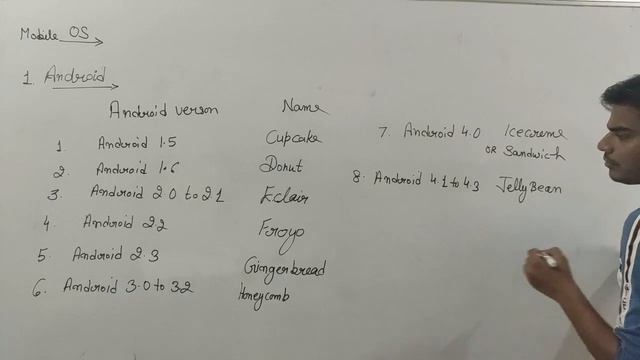 Mobile OS
1. Android
Android verson Name
1. Android 1.5 Cupcake
2. Android 1.6 Donut
3. Android 2.0 to 2.1 Eclair
4. Android 2.2 Froyo
5. Android 2.3 Gingerbread
6. Android 3.0 to 3.2 Honeycomb
7. Android 4.0 Icecreme
OR Sandwich
8. Android 4.1 to 4.3 Jelly Bean